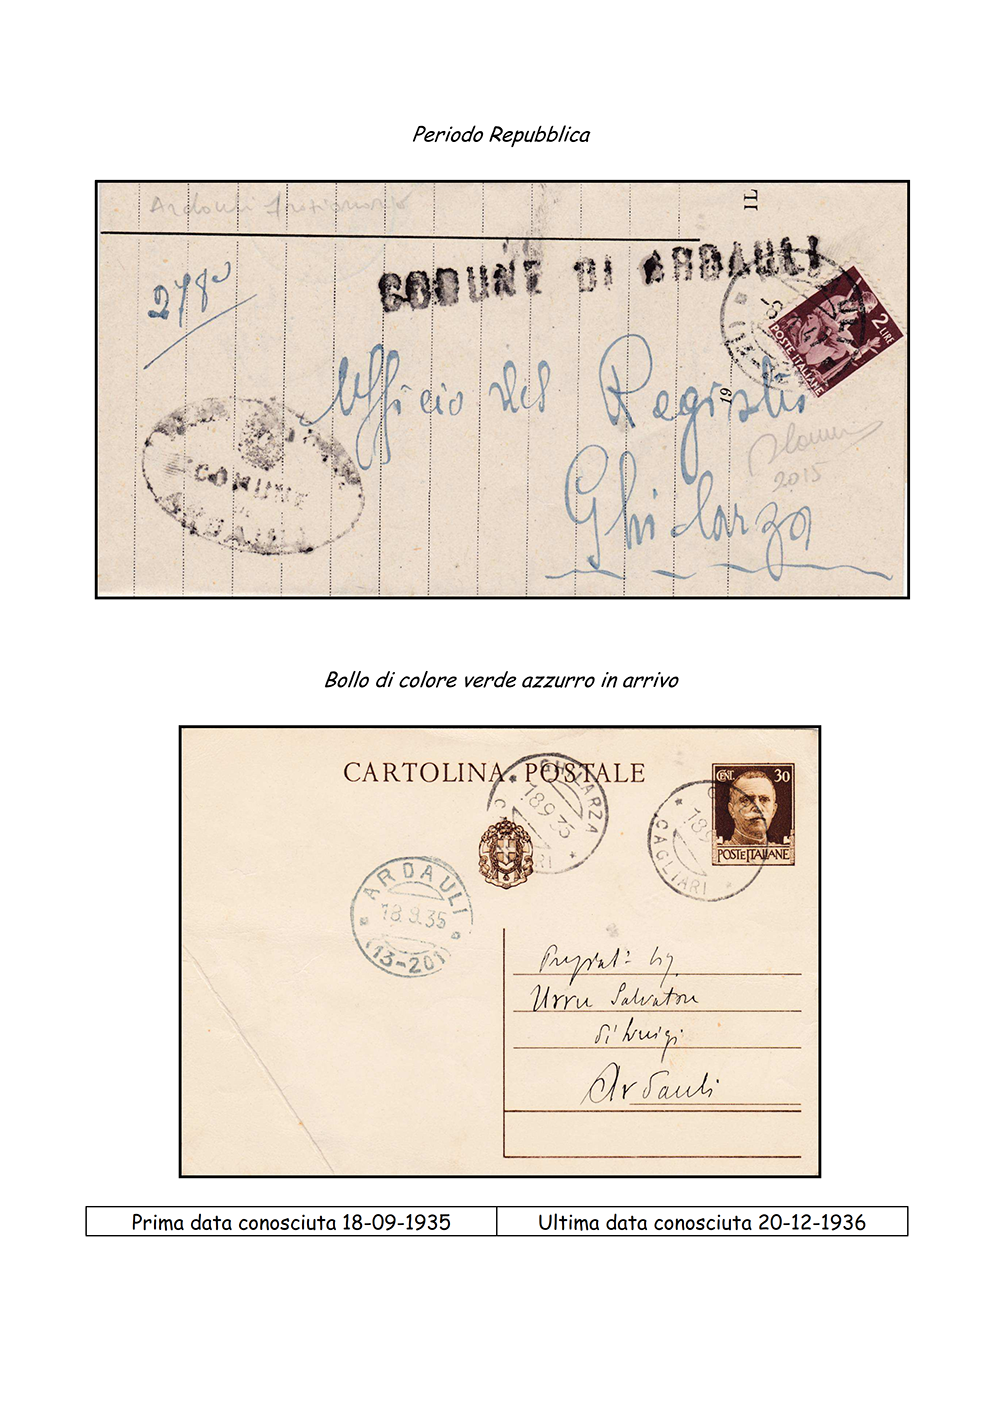 Periodo Repubblica
IL
COMUNE DI ARDAULI
2780
2 LIRE
POSTE ITALIANE
Ufficio del Registro
19
Ghilarza
2015
COMUNE
DI
ARDAULI
Bollo di colore verde azzurro in arrivo
CARTOLINA POSTALE
GHILARZA
18.9.35
CAGLIARI
CENT. 30
POSTE ITALIANE
18.9
CAGLIARI
ARDAULI
18.9.35
(13-201)
Urru Salvatore
di Luigi
Ardauli
Prima data conosciuta 18-09-1935
Ultima data conosciuta 20-12-1936